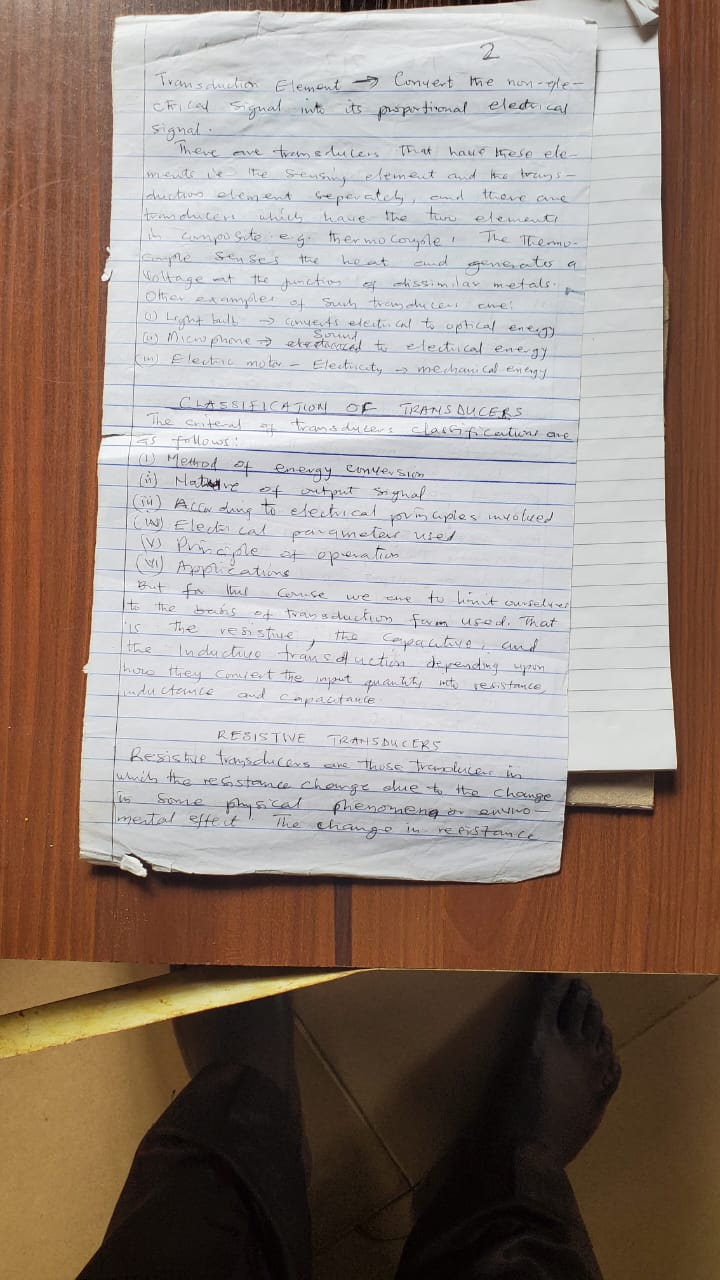 2
Transduction Element → Convert the non-ele-
ctrical signal into its proportional electrical
signal.
There are transducers that have these ele-
ments i.e the sensing element and the trans-
duction element seperately, and there are
transducers which have the two elements
in composite e.g. thermocouple. The Thermo-
couple senses the heat and generates a
voltage at the junction of dissimilar metals.
Other examples of such transducers are:
(i) Light bulb → converts electrical to optical energy
(ii) Microphone → Sound to electrical energy
(iii) Electric motor - Electricity → mechanical energy
CLASSIFICATION OF TRANSDUCERS
The criteral of transducers classifications are
as follows:
(i) Method of energy conversion
(ii) Nature of output signal
(iii) According to electrical principles involved
(iv) Electrical parameters used
(v) Principle of operation
(vi) Applications
But for this course we are to limit ourselves
to the basis of transduction form used. That
is the resistive, the capacitive, and
the Inductive transduction depending upon
how they convert the input quantity into resistance,
inductance and capacitance.
RESISTIVE TRANSDUCERS
Resistive transducers are those transducers in
which the resistance change due to the change
in some physical phenomena or enviro-
mental effect. The change in resistance